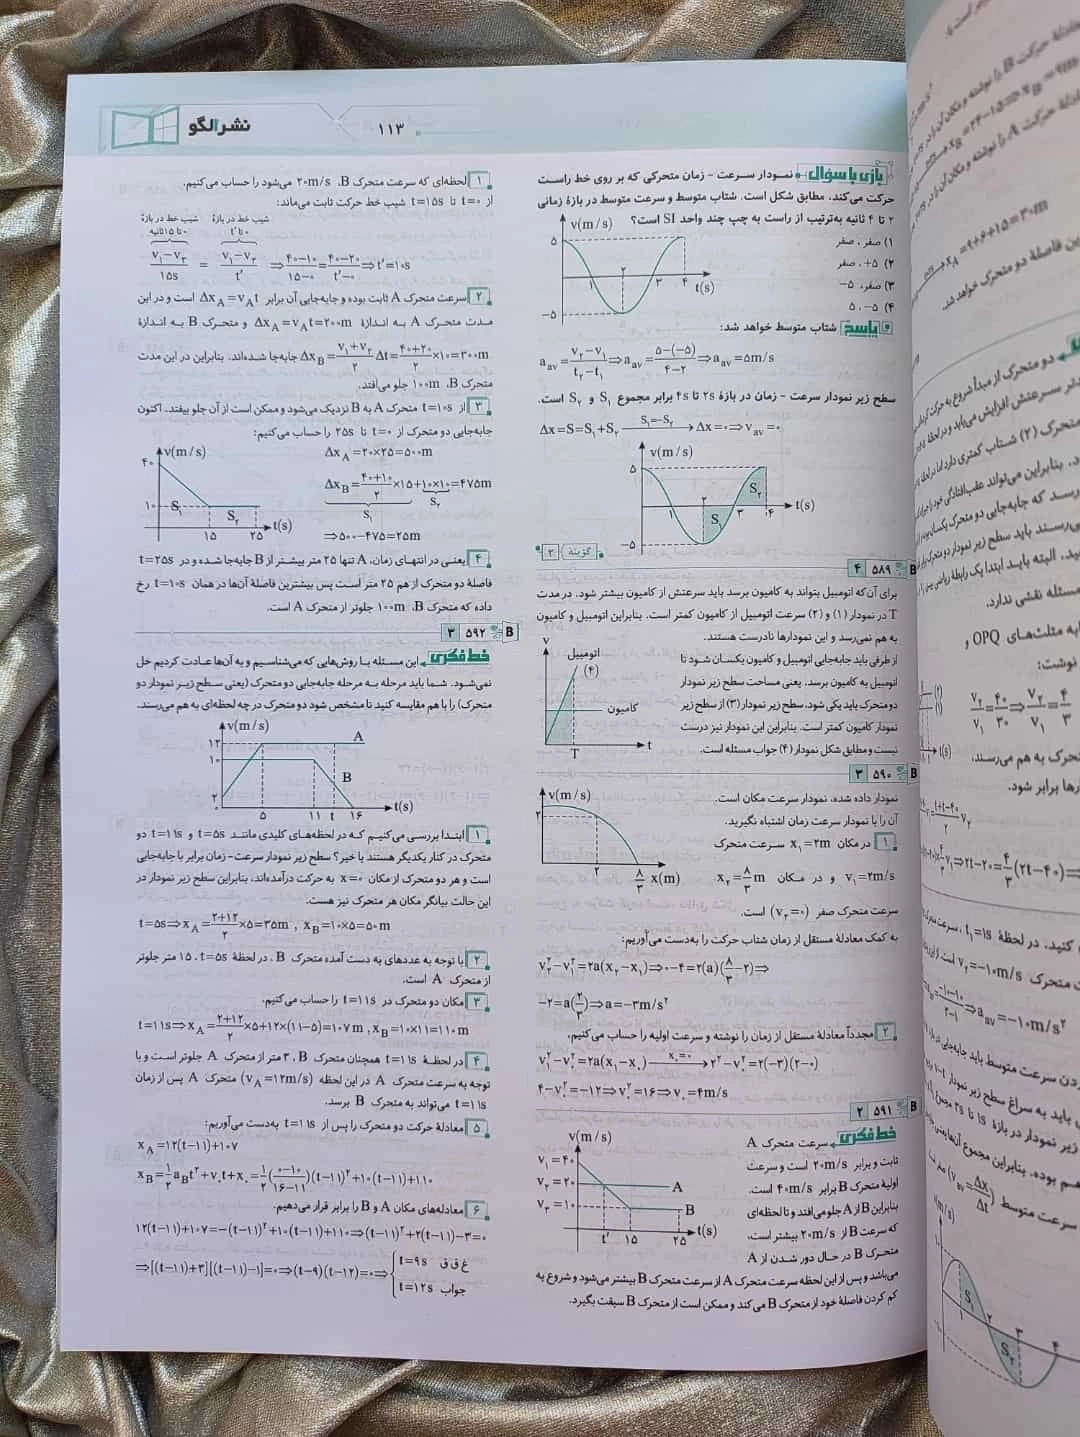 نشر الگو
۱۱۳
بازی با سؤال نمودار سرعت - زمان متحرکی که بر روی خط راست
حرکت می‌کند، مطابق شکل است. شتاب متوسط و سرعت متوسط در بازۀ زمانی
۲ تا ۴ ثانیه به‌ترتیب از راست به چپ چند واحد SI است؟
۱) صفر، صفر
۲) +۵، صفر
۳) صفر، -۵
۴) -۵، ۵
v(m/s)
۵
-۵
۱ ۲ ۳ ۴ t(s)
پاسخ شتاب متوسط خواهد شد:
a_av = (v₂-v₁)/(t₂-t₁) ⇒ a_av = (۵-(-۵))/(۴-۲) ⇒ a_av = ۵m/s
سطح زیر نمودار سرعت - زمان در بازۀ ۲s تا ۴s برابر مجموع S₁ و S₂ است.
Δx=S=S₁+S₂ —S₁=-S₂→ Δx=۰ ⇒ v_av=۰
v(m/s)
۵
-۵
۱ ۲ ۳ ۴ t(s)
S₁ S₂
گزینۀ ۲
B ۵۸۹ ۴
برای آن‌که اتومبیل بتواند به کامیون برسد باید سرعتش از کامیون بیشتر شود. در مدت
T در نمودار (۱) و (۲) سرعت اتومبیل از کامیون کمتر است. بنابراین اتومبیل و کامیون
به هم نمی‌رسد و این نمودارها نادرست هستند.
از طرفی باید جابه‌جایی اتومبیل و کامیون یکسان شود تا
اتومبیل به کامیون برسد. یعنی مساحت سطح زیر نمودار
دو متحرک باید یکی شود. سطح زیر نمودار (۳) از سطح زیر
نمودار کامیون کمتر است. بنابراین این نمودار نیز درست
نیست و مطابق شکل نمودار (۴) جواب مسئله است.
v
اتومبیل
(۴)
کامیون
T
t
B ۵۹۰ ۳
نمودار داده شده، نمودار سرعت مکان است.
آن را با نمودار سرعت زمان اشتباه نگیرید.
۱ در مکان x₁=۲m سرعت متحرک
v₁=۲m/s و در مکان x₂=۸/۳ m
سرعت متحرک صفر (v₂=۰) است.
v(m/s)
۲
۲ ۸/۳ x(m)
به کمک معادلۀ مستقل از زمان شتاب حرکت را به‌دست می‌آوریم:
v₂²-v₁²=۲a(x₂-x₁)⇒۰-۴=۲(a)(۸/۳-۲)⇒
-۲=a(۲/۳)⇒a=-۳m/s²
۲ مجدداً معادلۀ مستقل از زمان را نوشته و سرعت اولیه را حساب می‌کنیم.
v₁²-v₀²=۲a(x₁-x₀) —x₀=۰→ ۲²-v₀²=۲(-۳)(۲-۰)
۴-v₀²=-۱۲⇒v₀²=۱۶⇒v₀=۴m/s
B ۵۹۱ ۲
خط فکری سرعت متحرک A
ثابت و برابر ۲۰m/s است و سرعت
اولیۀ متحرک B برابر ۴۰m/s است.
بنابراین B از A جلو می‌افتد و تا لحظه‌ای
که سرعت B از ۲۰m/s بیشتر است،
متحرک B در حال دور شدن از A
می‌باشد و پس از این لحظه سرعت متحرک A از سرعت متحرک B بیشتر می‌شود و شروع به
کم کردن فاصلۀ خود از متحرک B می‌کند و ممکن است از متحرک B سبقت بگیرد.
v(m/s)
v₁=۴۰
v₂=۲۰
v₃=۱۰
A
B
t′ ۱۵ ۲۵ t(s)
۱ لحظه‌ای که سرعت متحرک B، ۲۰m/s می‌شود را حساب می‌کنیم.
از t=۰ تا t=۱۵s شیب خط حرکت ثابت می‌ماند:
شیب خط در بازۀ ۰ تا t′ شیب خط در بازۀ ۰ تا ۱۵ ثانیه
(v₁-v₃)/۱۵s = (v₁-v₂)/t′ ⇒ (۴۰-۱۰)/(۱۵-۰) = (۴۰-۲۰)/(t′-۰) ⇒ t′=۱۰s
۲ سرعت متحرک A ثابت بوده و جابه‌جایی آن برابر Δx_A=v_A t است و در این
مدت متحرک A به اندازۀ Δx_A=v_A t=۲۰۰m و متحرک B به اندازۀ
Δx_B=(v₁+v₂)/۲ Δt=(۴۰+۲۰)/۲×۱۰=۳۰۰m جابه‌جا شده‌اند. بنابراین در این مدت
متحرک B، ۱۰۰m جلو می‌افتد.
۳ از t=۱۰s متحرک A به B نزدیک می‌شود و ممکن است از آن جلو بیفتد. اکنون
جابه‌جایی دو متحرک از t=۰ تا ۲۵s را حساب می‌کنیم:
v(m/s)
۴۰
۱۰
S₁ S₂
۱۵ ۲۵ t(s)
Δx_A=۲۰×۲۵=۵۰۰m
Δx_B=(۴۰+۱۰)/۲×۱۵+۱۰×۱۰=۴۷۵m
S₁ S₂
⇒۵۰۰-۴۷۵=۲۵m
۴ یعنی در انتهای زمان، A تنها ۲۵ متر بیشتر از B جابه‌جا شده و در t=۲۵s
فاصلۀ دو متحرک از هم ۲۵ متر است پس بیشترین فاصلۀ آن‌ها در همان t=۱۰s رخ
داده که متحرک B، ۱۰۰m جلوتر از متحرک A است.
B ۵۹۲ ۳
خط فکری این مسئله با روش‌هایی که می‌شناسیم و به آن‌ها عادت کردیم حل
نمی‌شود. شما باید مرحله به مرحله جابه‌جایی دو متحرک (یعنی سطح زیر نمودار دو
متحرک) را با هم مقایسه کنید تا مشخص شود دو متحرک در چه لحظه‌ای به هم می‌رسند.
v(m/s)
۱۲
۱۰
۲
A
B
۵ ۱۱ t ۱۶ t(s)
۱ ابتدا بررسی می‌کنیم که در لحظه‌های کلیدی مانند t=۵s و t=۱۱s دو
متحرک در کنار یکدیگر هستند یا خیر؟ سطح زیر نمودار سرعت- زمان برابر با جابه‌جایی
است و هر دو متحرک از مکان x=۰ به حرکت درآمده‌اند، بنابراین سطح زیر نمودار در
این حالت بیانگر مکان هر متحرک نیز هست.
t=۵s⇒x_A=(۲+۱۲)/۲×۵=۳۵m , x_B=۱۰×۵=۵۰m
۲ با توجه به عددهای به دست آمده متحرک B، در لحظۀ t=۵s، ۱۵ متر جلوتر
از متحرک A است.
۳ مکان دو متحرک در t=۱۱s را حساب می‌کنیم.
t=۱۱s⇒x_A=(۲+۱۲)/۲×۵+۱۲×(۱۱-۵)=۱۰۷m , x_B=۱۰×۱۱=۱۱۰m
۴ در لحظۀ t=۱۱s همچنان متحرک B، ۳ متر از متحرک A جلوتر است و با
توجه به سرعت متحرک A در این لحظه (v_A=۱۲m/s) متحرک A پس از زمان
t=۱۱s می‌تواند به متحرک B برسد.
۵ معادلۀ حرکت دو متحرک را پس از t=۱۱s به‌دست می‌آوریم:
x_A=۱۲(t-۱۱)+۱۰۷
x_B=۱/۲ a_B t²+v₀t+x₀=۱/۲((۰-۱۰)/(۱۶-۱۱))(t-۱۱)²+۱۰(t-۱۱)+۱۱۰
۶ معادله‌های مکان A و B را برابر قرار می‌دهیم.
۱۲(t-۱۱)+۱۰۷=-(t-۱۱)²+۱۰(t-۱۱)+۱۱۰⇒(t-۱۱)²+۲(t-۱۱)-۳=۰
⇒[(t-۱۱)+۳][(t-۱۱)-۱]=۰⇒(t-۹)(t-۱۲)=۰⇒
t=۹s غ ق ق
t=۱۲s جواب